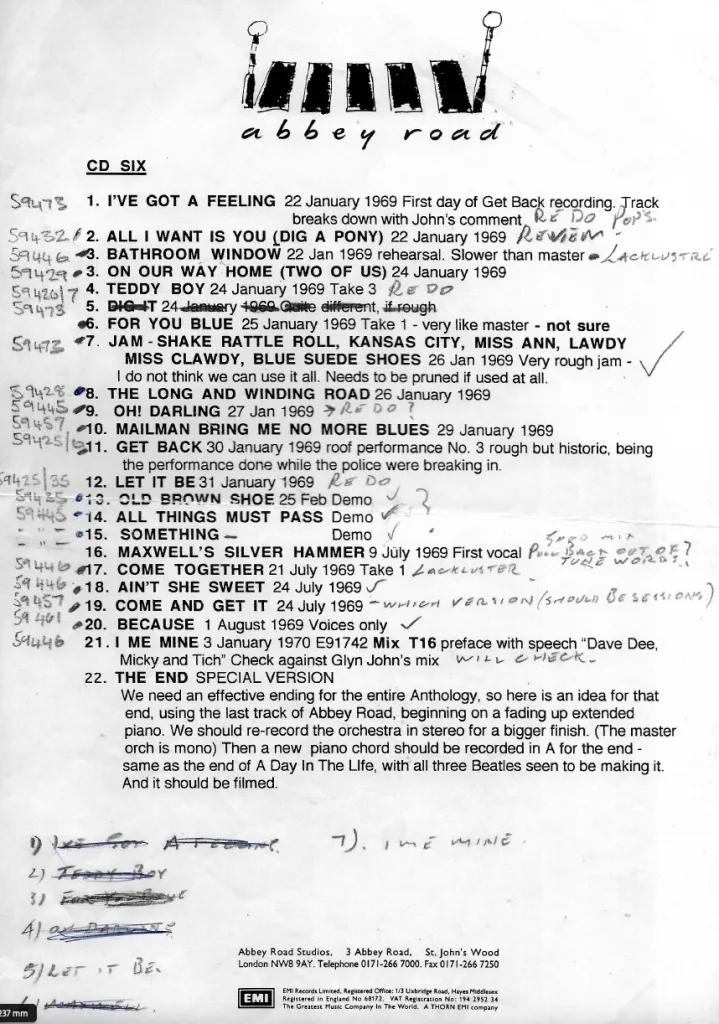 abbey road
CD SIX
59473 1. I'VE GOT A FEELING 22 January 1969 First day of Get Back recording. Track
breaks down with John's comment RE DO POP'S.
59432/ 2. ALL I WANT IS YOU (DIG A PONY) 22 January 1969 REVIEW -
59446 3. BATHROOM WINDOW 22 Jan 1969 rehearsal. Slower than master - LACKLUSTRE
59429 3. ON OUR WAY HOME (TWO OF US) 24 January 1969
59426/7 4. TEDDY BOY 24 January 1969 Take 3 RE DO
59473 5. DIG IT 24 January 1969 Quite different, if rough
6. FOR YOU BLUE 25 January 1969 Take 1 - very like master - not sure
59473 7. JAM - SHAKE RATTLE ROLL, KANSAS CITY, MISS ANN, LAWDY
MISS CLAWDY, BLUE SUEDE SHOES 26 Jan 1969 Very rough jam - ✓
I do not think we can use it all. Needs to be pruned if used at all.
59428 8. THE LONG AND WINDING ROAD 26 January 1969
59445 9. OH! DARLING 27 Jan 1969 → RE DO ?
59457 10. MAILMAN BRING ME NO MORE BLUES 29 January 1969
59425/ 11. GET BACK 30 January 1969 roof performance No. 3 rough but historic, being
the performance done while the police were breaking in.
59425/35 12. LET IT BE 31 January 1969 RE DO
59435 13. OLD BROWN SHOE 25 Feb Demo ✓ ?
59445 14. ALL THINGS MUST PASS Demo ✓
" - " 15. SOMETHING - Demo ✓
16. MAXWELL'S SILVER HAMMER 9 July 1969 First vocal PULL BACK OUT OF TUNE WORDS?
59446 17. COME TOGETHER 21 July 1969 Take 1 LACKLUSTER
59446 18. AIN'T SHE SWEET 24 July 1969 ✓
59457 19. COME AND GET IT 24 July 1969 - WHICH VERSION (SHOULD BE SESSIONS)
59461 20. BECAUSE 1 August 1969 Voices only ✓
59446 21. I ME MINE 3 January 1970 E91742 Mix T16 preface with speech "Dave Dee,
Micky and Tich" Check against Glyn John's mix WILL CHECK -
22. THE END SPECIAL VERSION
We need an effective ending for the entire Anthology, so here is an idea for that
end, using the last track of Abbey Road, beginning on a fading up extended
piano. We should re-record the orchestra in stereo for a bigger finish. (The master
orch is mono) Then a new piano chord should be recorded in A for the end -
same as the end of A Day In The LIfe, with all three Beatles seen to be making it.
And it should be filmed.
1) I'VE GOT A FEELING 7). I ME MINE.
2) TEDDY BOY
3) FOR YOU BLUE
4) OH DARLING
5) LET IT BE.
MAXWELL
Abbey Road Studios, 3 Abbey Road, St. John's Wood
London NW8 9AY. Telephone 0171-266 7000. Fax 0171-266 7250
EMI
EMI Records Limited, Registered Office: 1/3 Uxbridge Road, Hayes Middlesex
Registered in England No 68172. VAT Registration No: 194 2952 34
The Greatest Music Company In The World. A THORN EMI company
237 mm